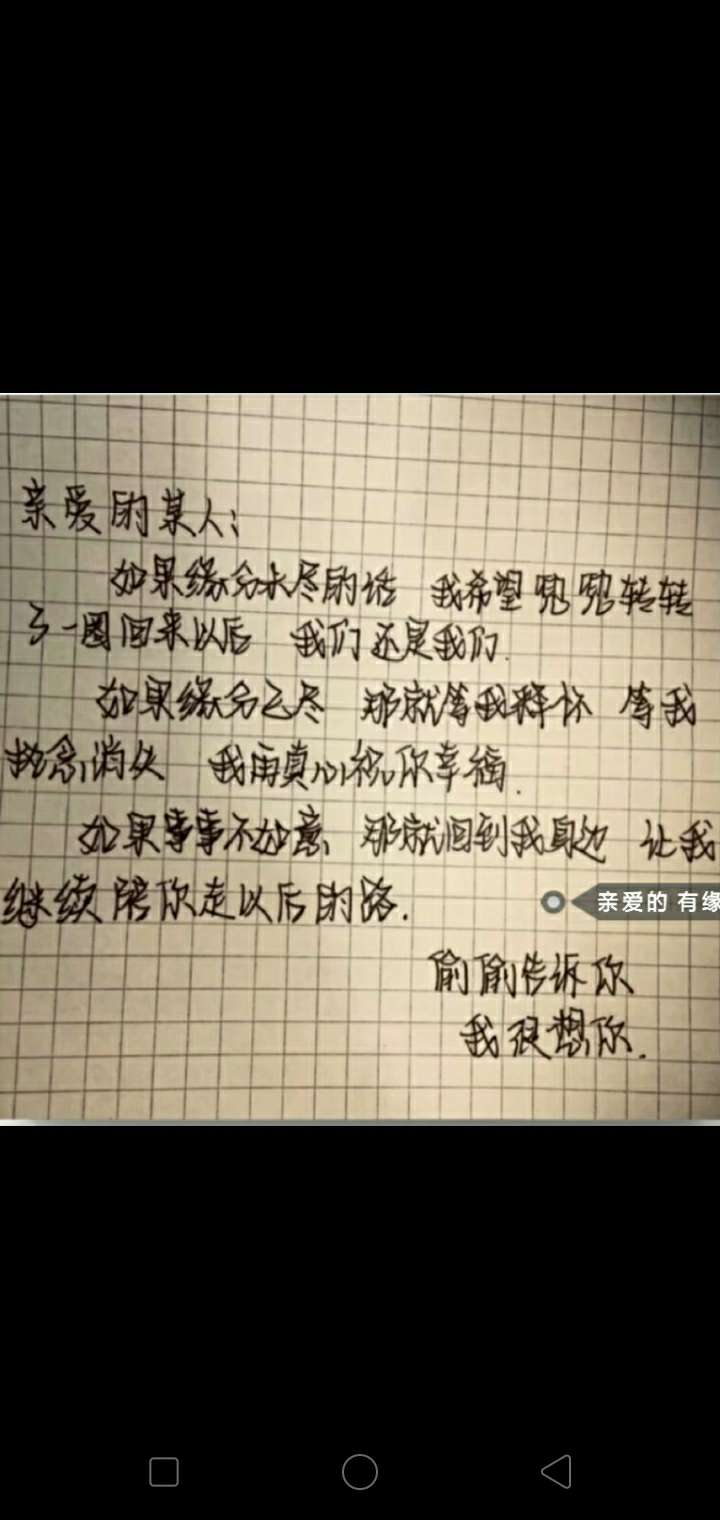 亲爱的某人:
如果缘分未尽的话 我希望兜兜转转
了一圈回来以后 我们还是我们.
如果缘分已尽 那就等我释怀 等我
执念消失 我再真心祝你幸福.
如果事事不如意 那就回到我身边 让我
继续陪你走以后的路.
亲爱的 有缘
偷偷告诉你
我很想你.